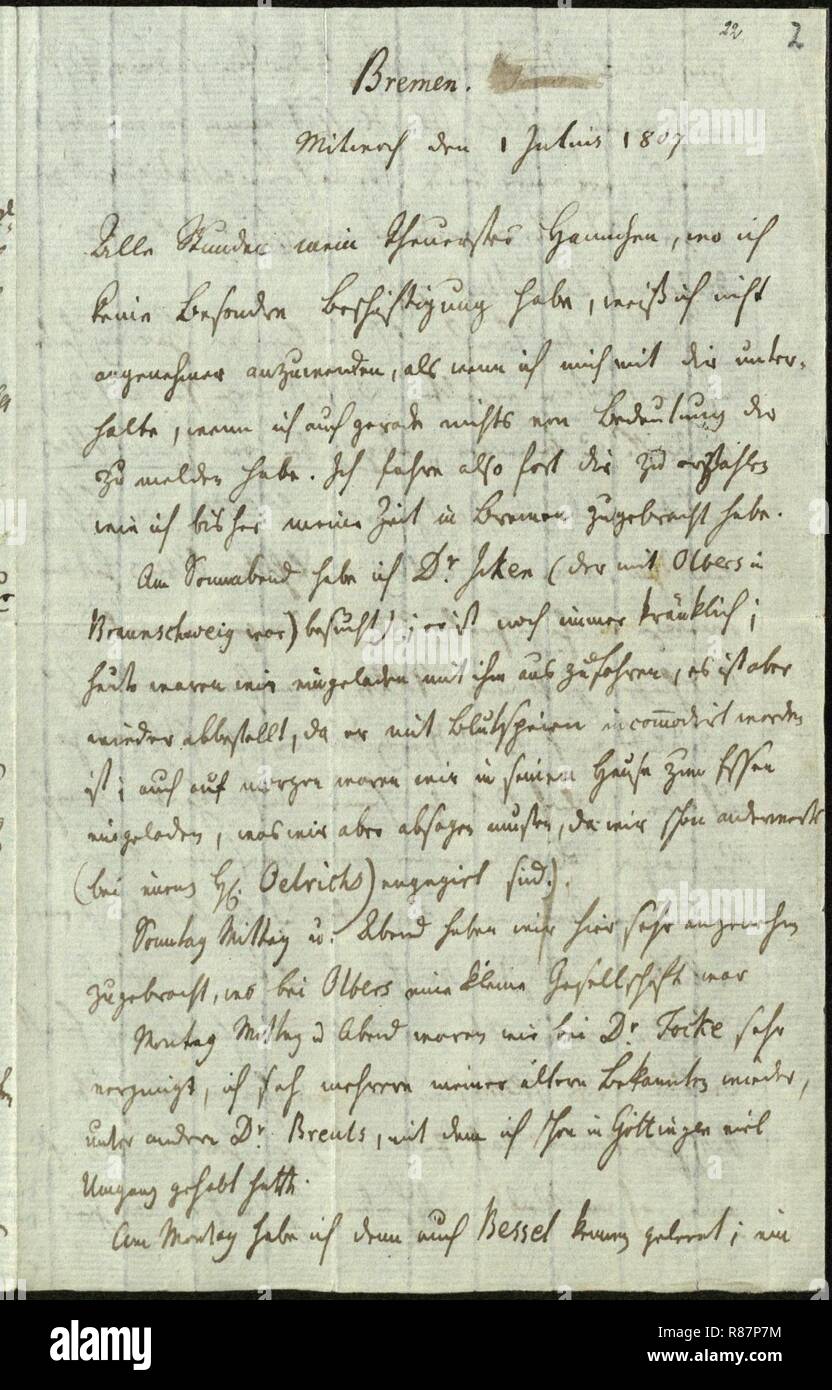 22 2
Bremen.
Mitwoch den 1 Julius 1807
Alle Stunden mein theuerstes Hannchen, wo ich
keine besondre Beschäftigung habe, weiß ich nicht
angenehmer anzuwenden, als wenn ich mich mit dir unter-
halte, wenn ich auch gerade nichts von Bedeutung dir
zu melden habe. Ich fahre also fort dir zu erzählen
wie ich bisher meine Zeit in Bremen zugebracht habe.
Am Sonnabend habe ich Dr. Icken (der mit Olbers in
Braunschweig war) besucht; er ist noch immer kränklich;
heute waren wir eingeladen mit ihm aus zu fahren, es ist aber
wieder abbestellt, da er mit Blutspeien incommodirt worden
ist; auch auf morgen waren wir in seinem Hause zum Essen
eingeladen, was wir aber absagen mußten, da wir schon anderwerts
(bei einem H. Oelrichs) engagirt sind.).
Sonntag Mittag u. Abend haben wir hier sehr angenehm
zugebracht, wo bei Olbers eine kleine Gesellschaft war
Montag Mittag u Abend waren wir bei Dr. Focke sehr
vergnügt, ich sah mehrere meiner ältern Bekannten wieder,
unter andern Dr. , mit dem ich schon in Göttingen viel
Umgang gehabt hatte.
Am Montag habe ich denn auch Bessel kennen gelernt; ein
alamy
alamy
alamy
alamy
Image ID: R88P7M
www.alamy.com